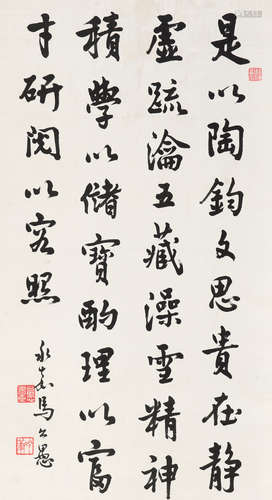 是以陶鈞文思貴在静
虛疏瀹五藏澡雪精神
積學以儲寶酌理以富
才研閱以窮照
永嘉馬公愚